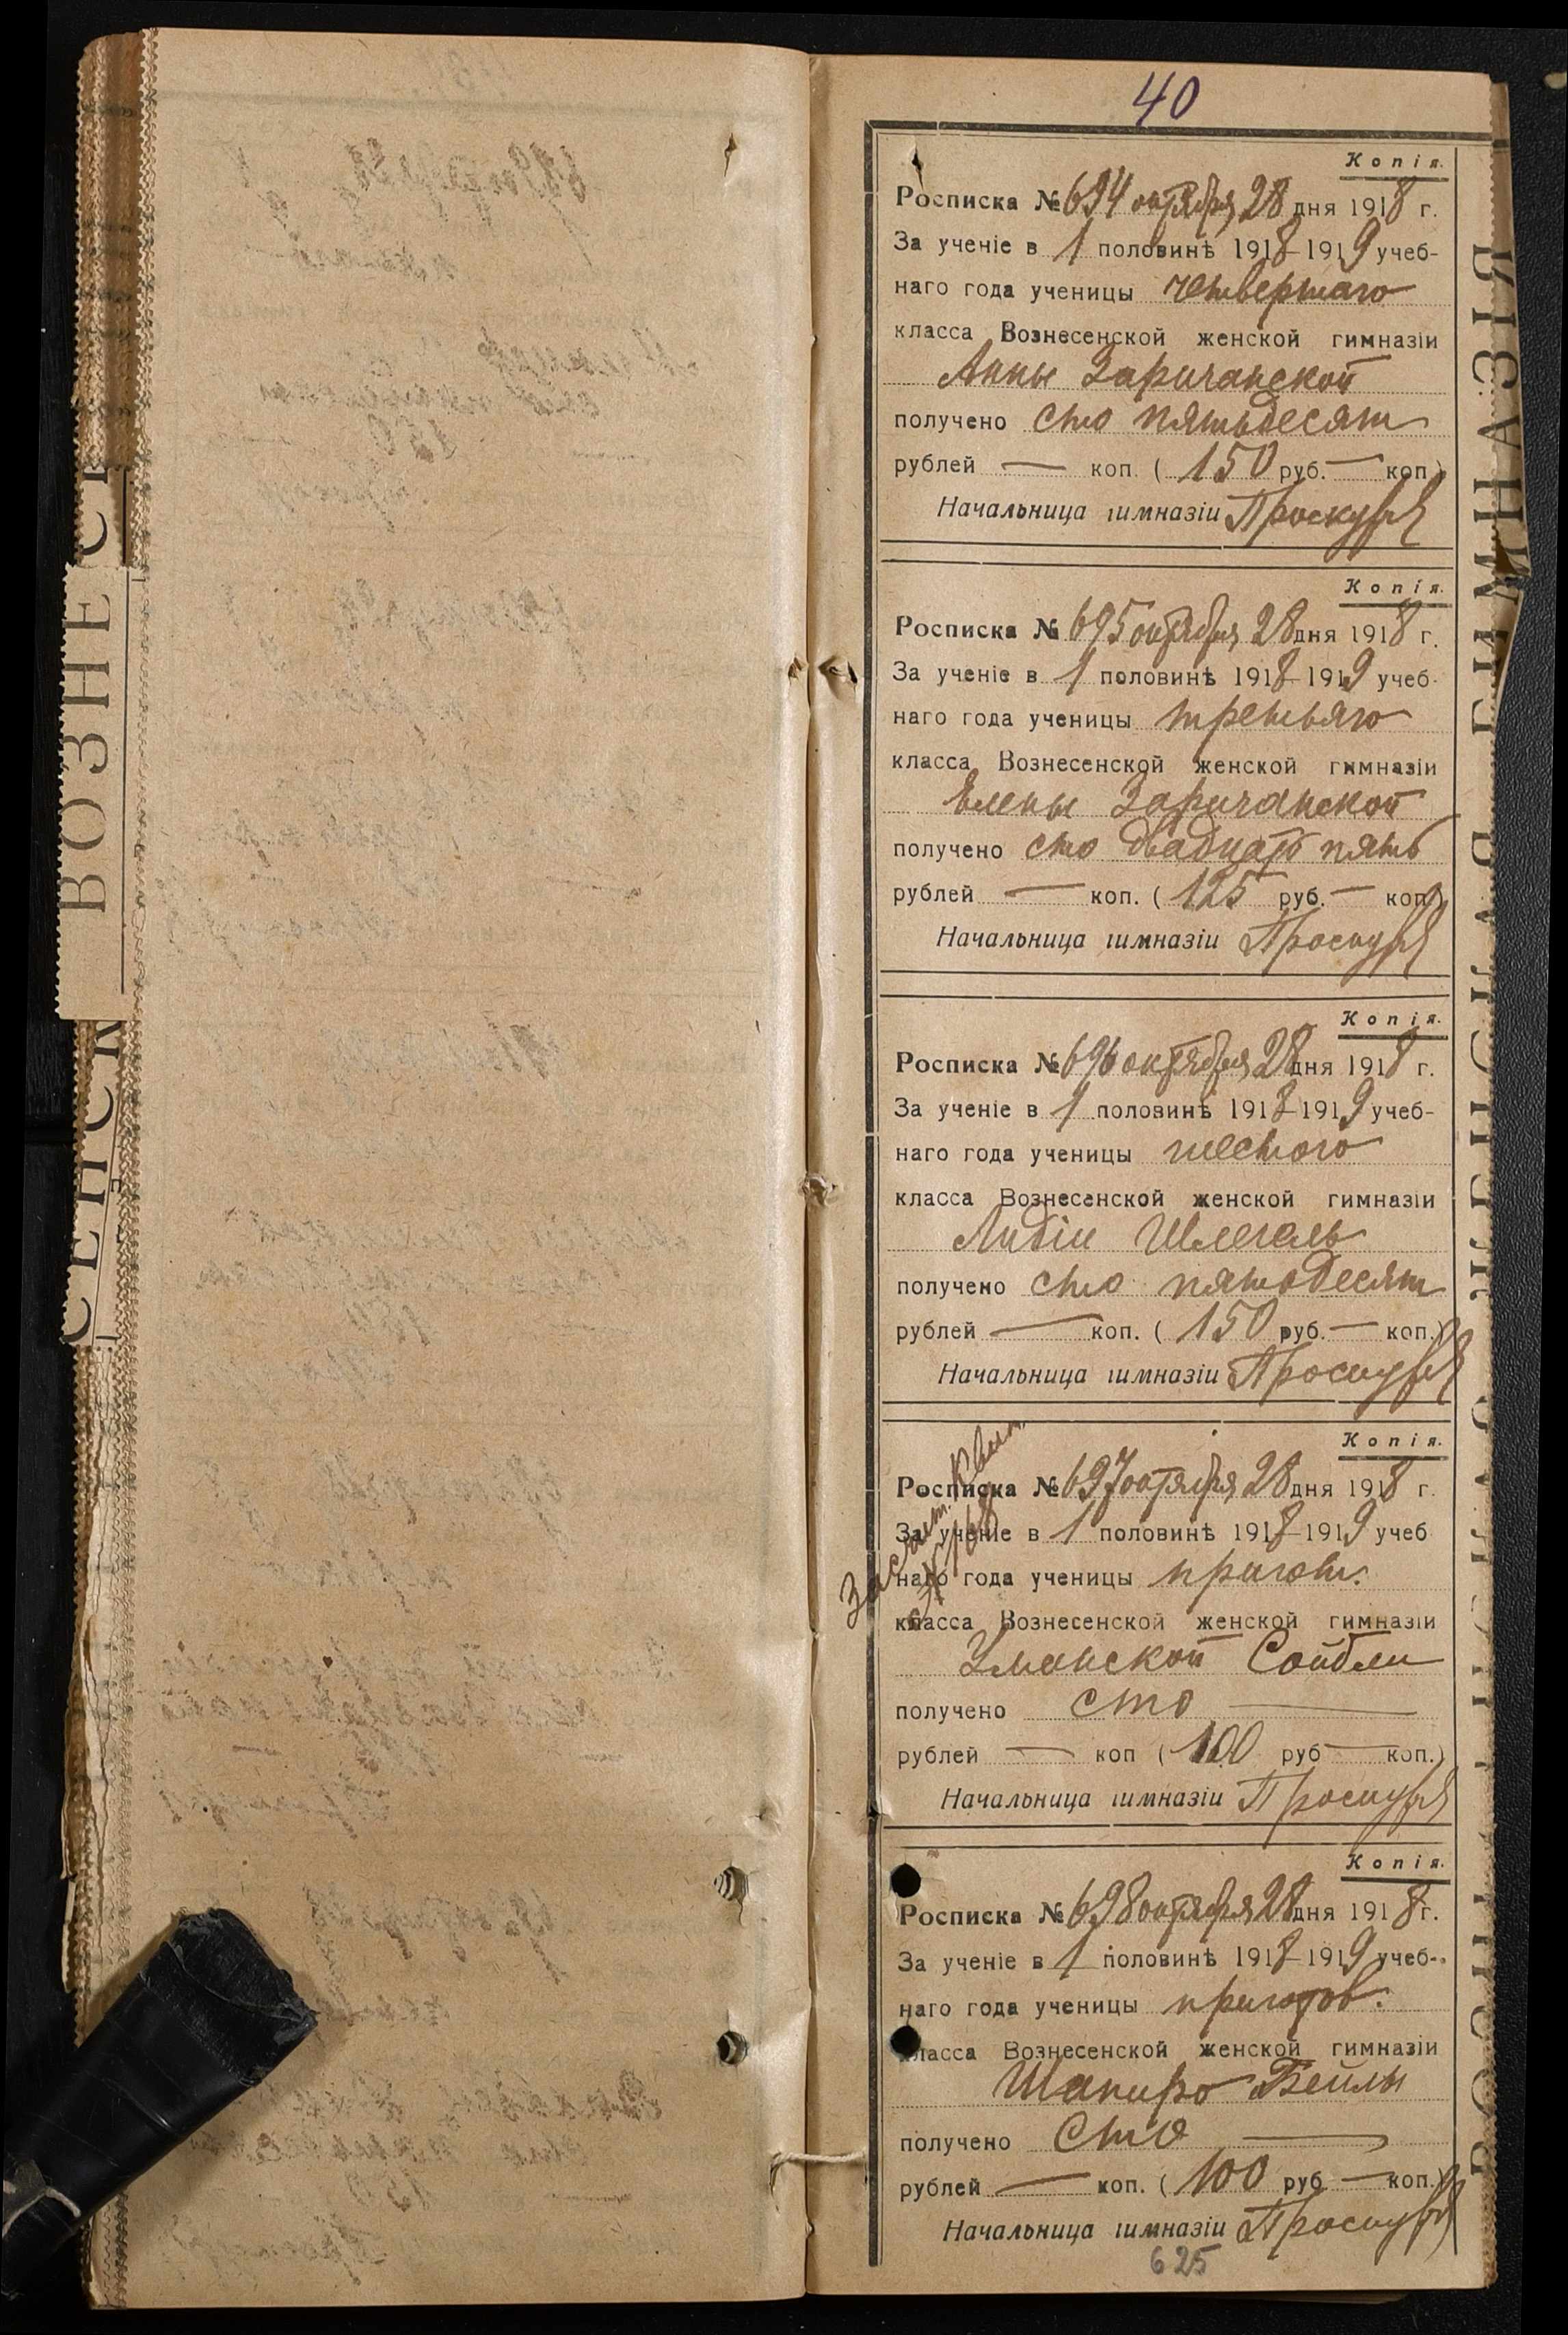 40
Копія.
Росписка № 694 октября 28 дня 1918 г.
За ученіе в 1 половинѣ 1918-1919 учеб-
наго года ученицы четвертаго
класса Вознесенской женской гимназіи
Анны Заричанской
получено сто пятьдесят
рублей — коп. (150 руб. — коп.)
Начальница гимназіи
Копія.
Росписка № 695 октября 28 дня 1918 г.
За ученіе в 1 половинѣ 1918-1919 учеб-
наго года ученицы третьяго
класса Вознесенской женской гимназіи
Елены Заричанской
получено сто двадцать пять
рублей — коп. (125 руб. — коп.)
Начальница гимназіи
Копія.
Росписка № 696 октября 28 дня 1918 г.
За ученіе в 1 половинѣ 1918-1919 учеб-
наго года ученицы шестого
класса Вознесенской женской гимназіи
Лидіи Шлегель
получено сто пятьдесят
рублей — коп. (150 руб. — коп.)
Начальница гимназіи
Копія.
Росписка № 697 октября 28 дня 1918 г.
За ученіе в 1 половинѣ 1918-1919 учеб
наго года ученицы пригот.
класса Вознесенской женской гимназіи
Уманской Сойбли
получено сто —
рублей — коп (100 руб — коп.)
Начальница гимназіи
Копія.
Росписка № 698 октября 28 дня 1918 г.
За ученіе в 1 половинѣ 1918-1919 учеб-
наго года ученицы приготов.
класса Вознесенской женской гимназіи
Шапиро Бейлы
получено Сто —
рублей — коп. (100 руб — коп.)
Начальница гимназіи
625
ВОЗНЕ